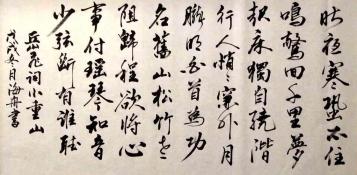 昨夜寒蛩不住
鳴驚回千里夢
起床獨自繞階
行人悄悄窗外月
朧明白首為功
名舊山松竹老
阻歸程欲將心
事付瑤琴知音
少弦斷有誰聽
岳飛詞小重山